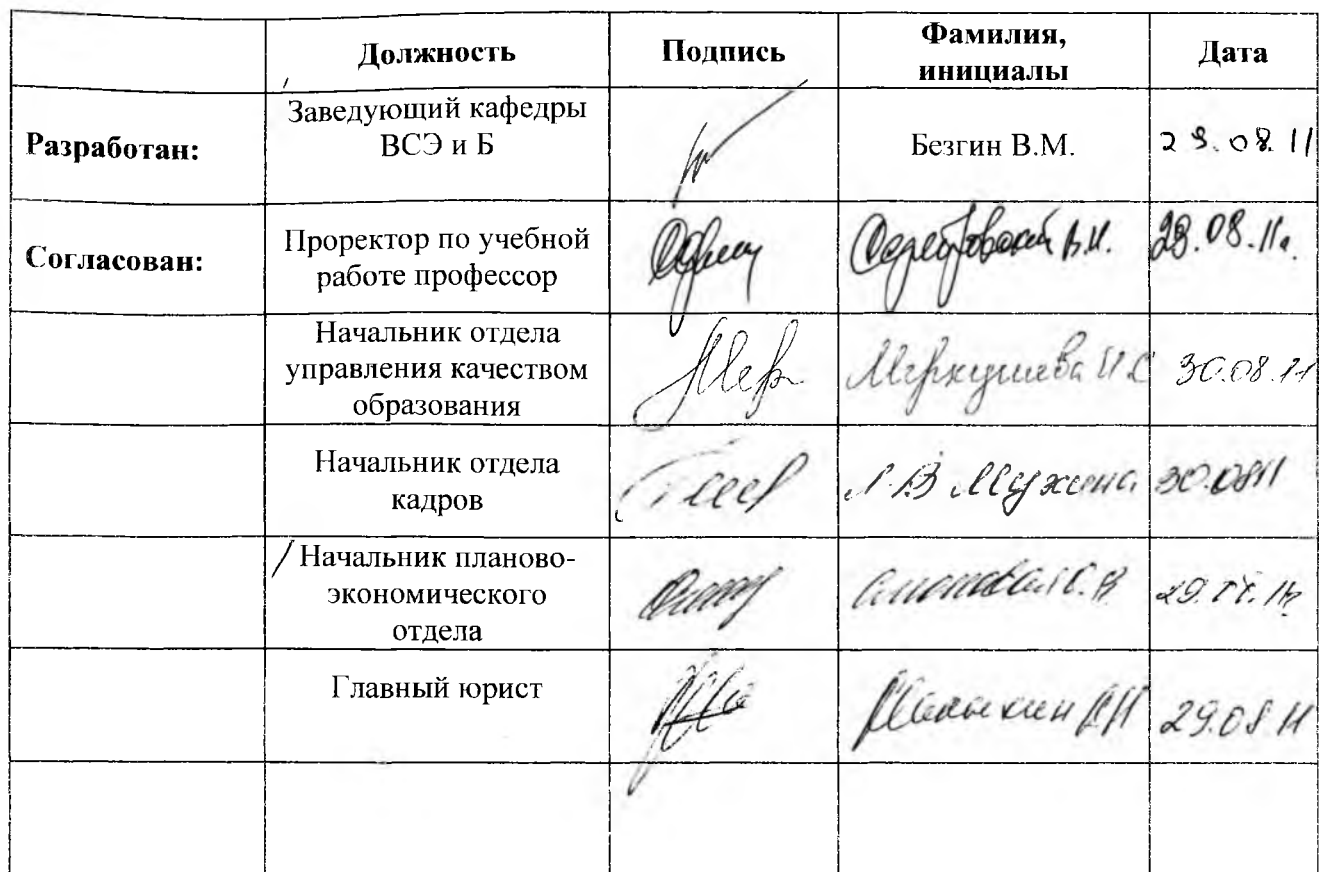 Должность Подпись Фамилия, инициалы Дата
Разработан: Заведующий кафедры
ВСЭ и Б
Безгин В.М. 29.08.11
Согласован: Проректор по учебной
работе профессор
Серебровский В.И. 29.08.11г.
Начальник отдела
управления качеством
образования
Меркушева И.С 30.08.11
Начальник отдела
кадров
Л.В Мухина 30.0811
/Начальник планово-
экономического
отдела
С.В. 29.
Главный юрист
29.08 11